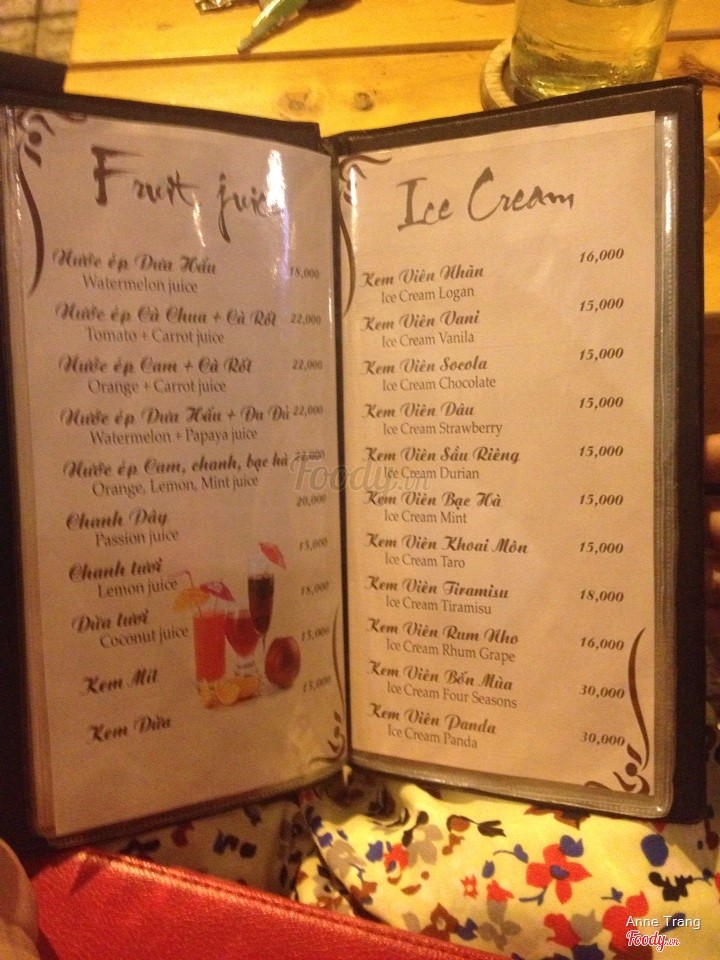 Fruit juice
Nước ép Dưa Hấu 18,000
Watermelon juice
Nước ép Cà Chua + Cà Rốt 22,000
Tomato + Carrot juice
Nước ép Cam + Cà Rốt 22,000
Orange + Carrot juice
Nước ép Dưa Hấu + Đu Đủ 22,000
Watermelon + Papaya juice
Nước ép Cam, chanh, bạc hà 22,000
Orange, Lemon, Mint juice
Chanh Dây 20,000
Passion juice
Chanh tươi 15,000
Lemon juice
Dừa tươi 18,000
Coconut juice
Kem Mít 15,000
Kem Dừa 15,000
Ice Cream
Kem Viên Nhãn 16,000
Ice Cream Logan
Kem Viên Vani 15,000
Ice Cream Vanila
Kem Viên Socola 15,000
Ice Cream Chocolate
Kem Viên Dâu 15,000
Ice Cream Strawberry
Kem Viên Sầu Riêng 15,000
Ice Cream Durian
Kem Viên Bạc Hà 15,000
Ice Cream Mint
Kem Viên Khoai Môn 15,000
Ice Cream Taro
Kem Viên Tiramisu 18,000
Ice Cream Tiramisu
Kem Viên Rum Nho 16,000
Ice Cream Rhum Grape
Kem Viên Bốn Mùa 30,000
Ice Cream Four Seasons
Kem Viên Panda 30,000
Ice Cream Panda
Foody.vn
Anne Trang
Foody.vn